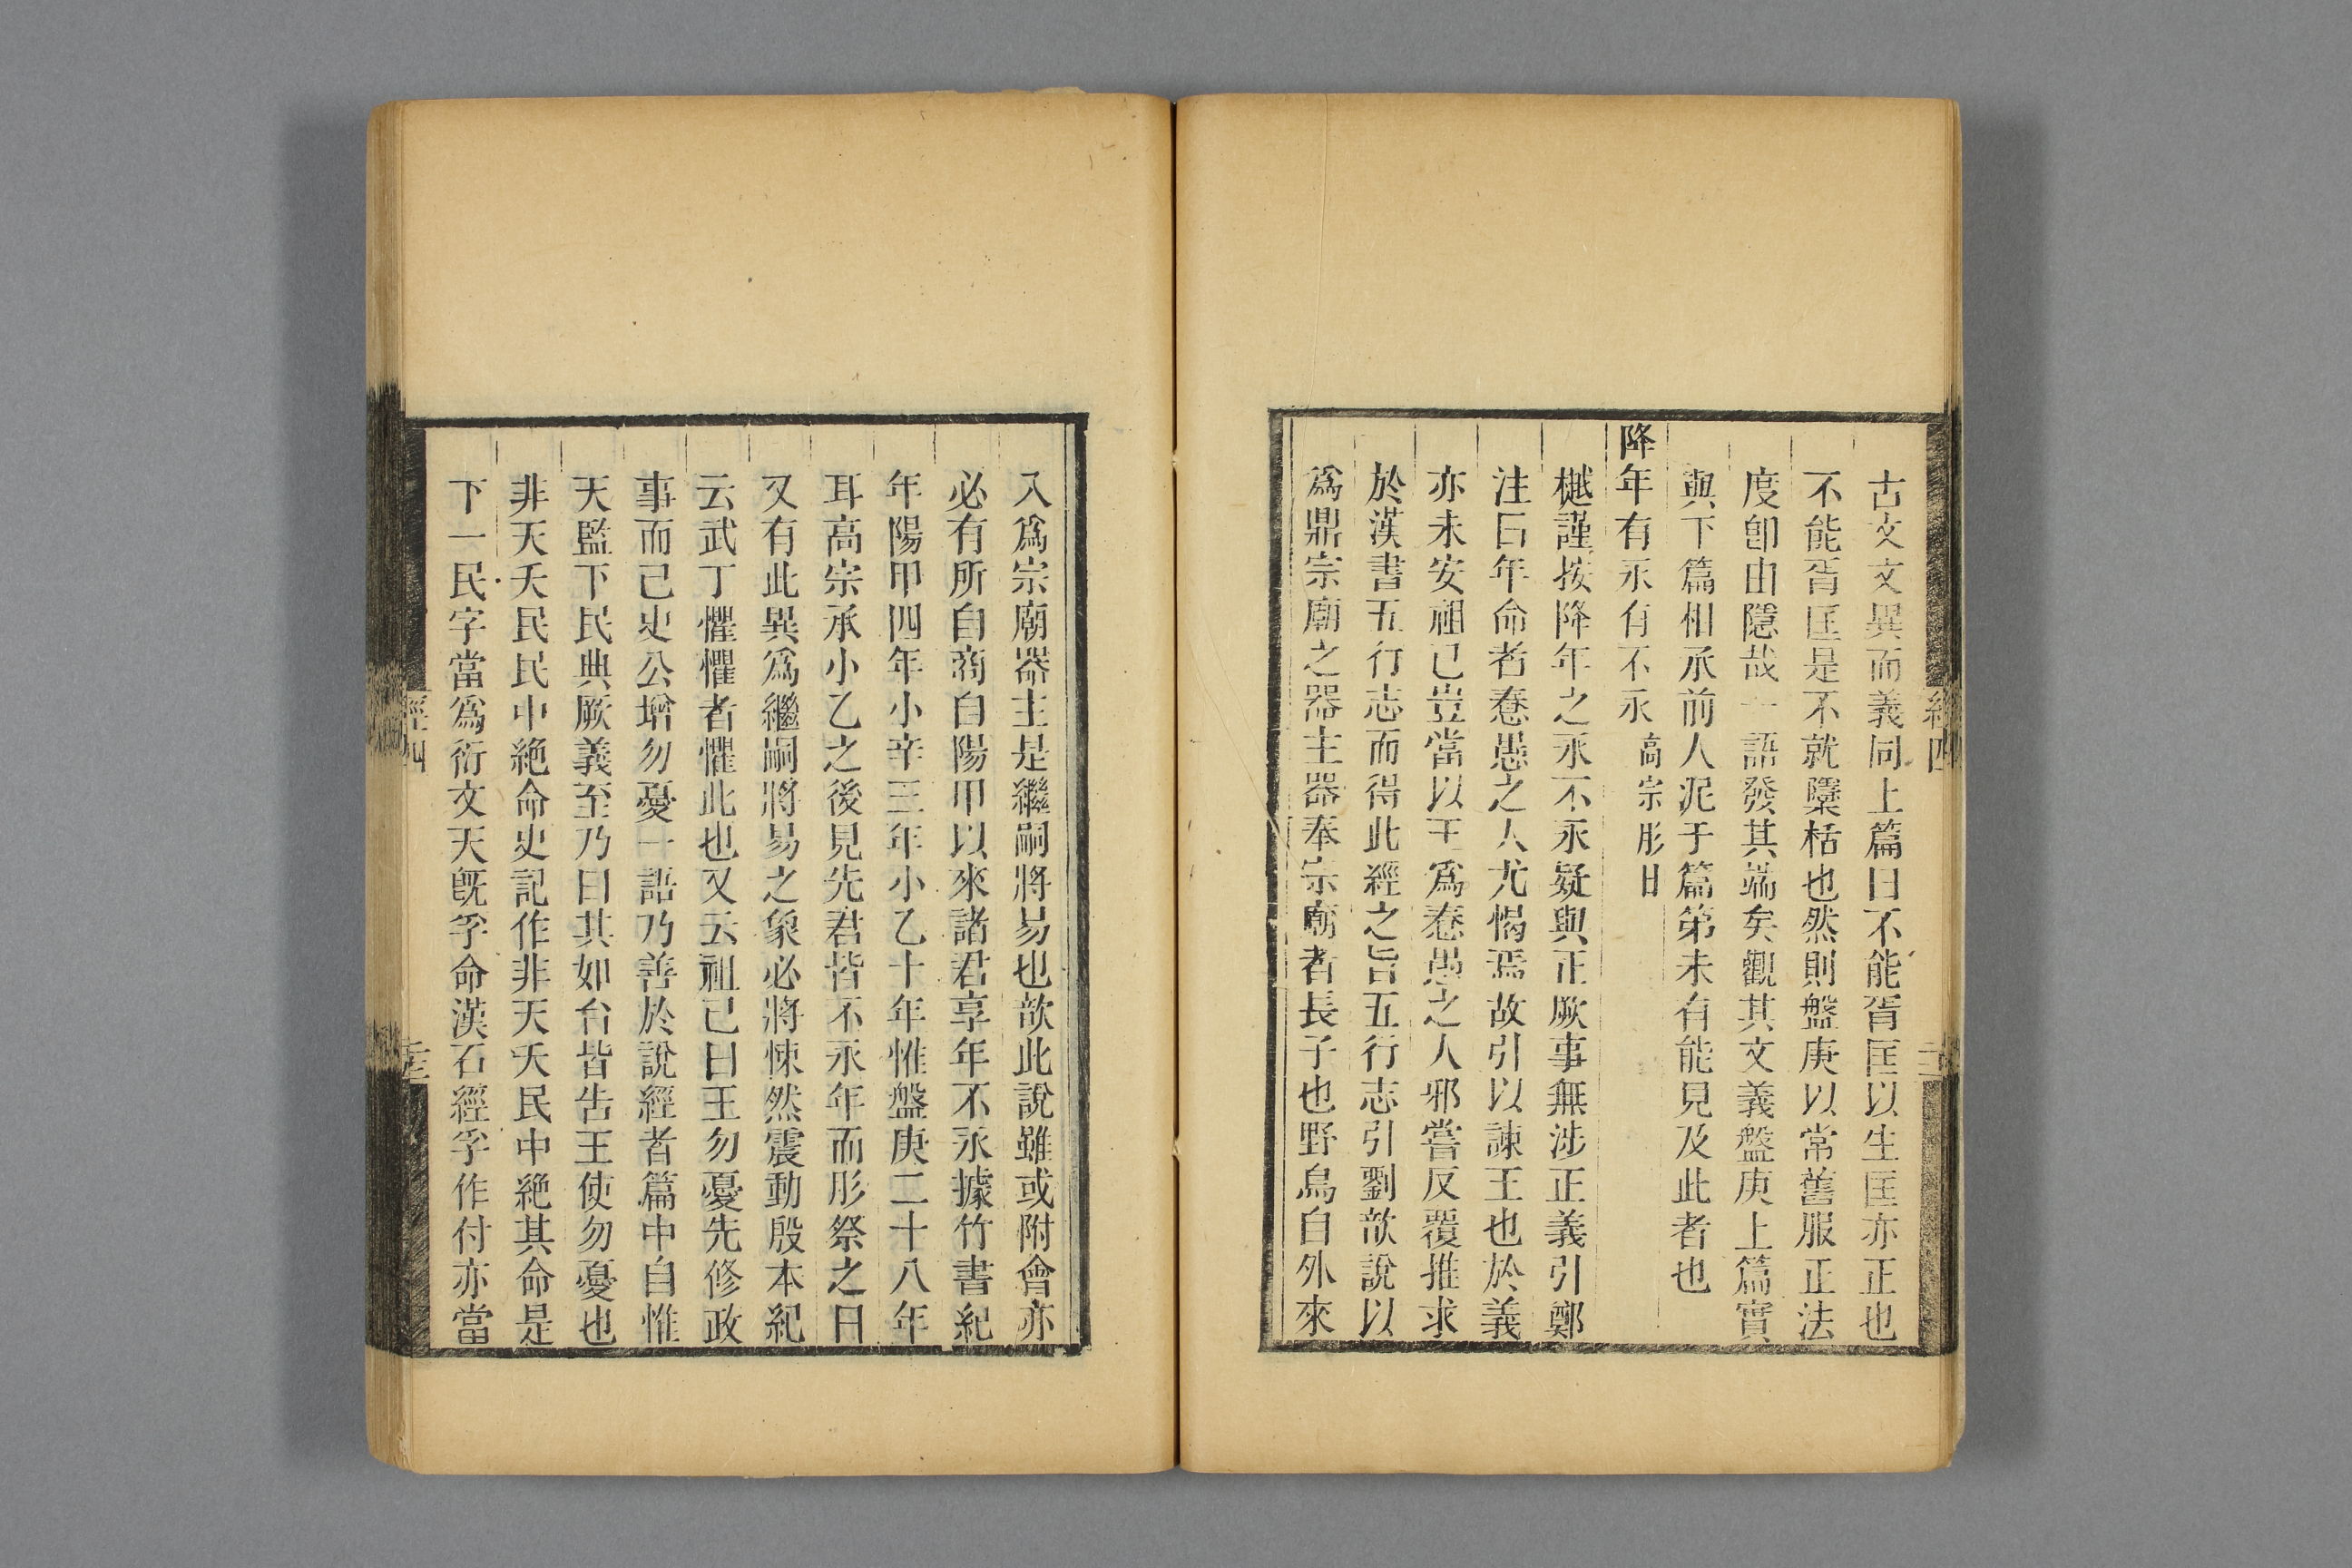 古文文異而義同上篇曰不能胥匡以生匡亦正也
不能胥匡是不就櫽栝也然則盤庚以常舊服正法
度卽由隱哉一語發其端矣觀其文義盤庚上篇實
與下篇相承前人泥于篇第未有能見及此者也
降年有永有不永高宗肜日
樾謹按降年之永不永疑與正厥事無涉正義引鄭
注曰年命者惷愚之人尤愒焉故引以諫王也於義
亦未安祖已豈當以王爲惷愚之人邪嘗反覆推求
於漢書五行志而得此經之旨五行志引劉歆說以
爲鼎宗廟之器主器奉宗廟者長子也野鳥自外來
入爲宗廟器主是繼嗣將易也歆此說雖或附會亦
必有所自商自陽甲以來諸君享年不永據竹書紀
年陽甲四年小辛三年小乙十年惟盤庚二十八年
耳高宗承小乙之後見先君皆不永年而肜祭之日
又有此異爲繼嗣將易之象必將悚然震動殷本紀
云武丁懼懼者懼此也又云祖已曰王勿憂先修政
事而已史公增勿憂一語乃善於說經者篇中自惟
天監下民典厥義至乃曰其如台皆告王使勿憂也
非天夭民民中絶命史記作非天夭民中絶其命是
下一民字當爲衍文天旣孚命漢石經孚作付亦當
經四